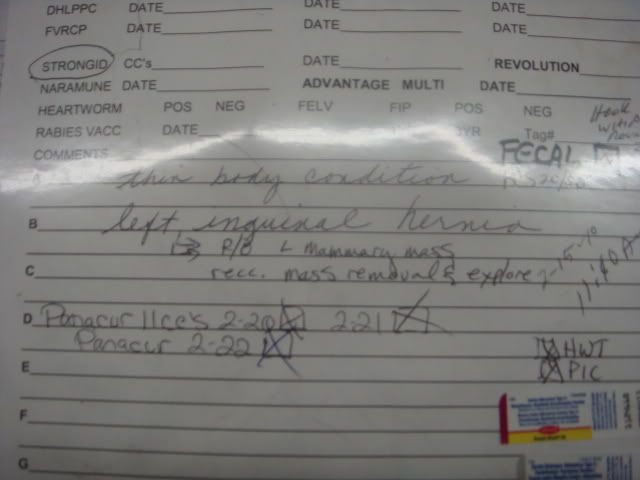 DHLPPC DATE DATE DATE
FVRCP DATE DATE DATE
STRONGID CC's DATE REVOLUTION
NARAMUNE DATE ADVANTAGE MULTI DATE
HEARTWORM POS NEG FELV FIP POS NEG Hook
RABIES VACC DATE YR Tag# whip
COMMENTS FECAL
A thin body condition
B left inguinal hernia
R/O L mammary mass
C recc. mass removal & explore
D Panacur 11cc's 2-20 2-21
Panacur 2-22 HWT
E PIC
F
G